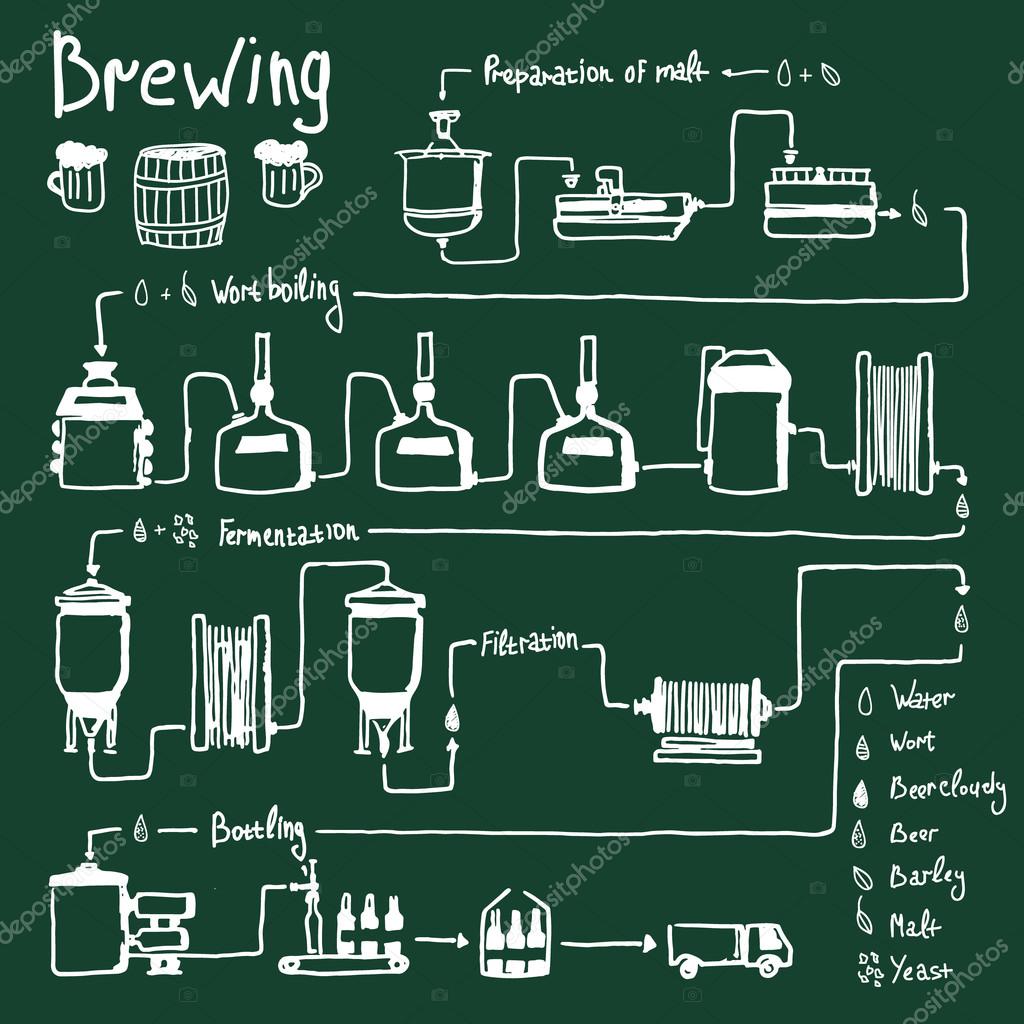 Brewing
Preparation of malt
+
+ Wort boiling
+ Fermentation
Filtration
Water
Wort
Beer cloudy
Bottling
Beer
Barley
Malt
Yeast
depositphotos